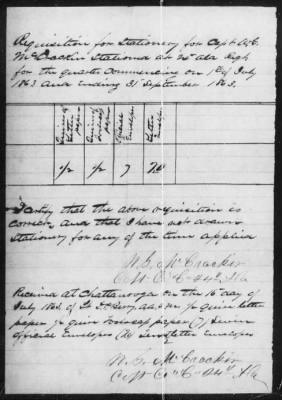 Requisition for Stationery for Capt W. G.
McCrackin Stationed at 24th Ala Regt
for the quarter commencing on 1st of July
1863 and ending 31st September 1863.
Quires of Letter paper
Quires of foolscap paper
Official Envelopes
Letter Envelopes
1/2
1/2
7
I certify that the above requisition is
correct, and that I have not drawn
stationery for any of the time applied
W. G. McCrackin
Capt Co C 24th Ala
Received at Chattanooga on the 16 day of
July 1863 of
quire letter
paper 1/2 quire foolscap paper (7) seven
official Envelopes letter Envelopes
W. G. McCrackin
Capt Co C 24th Ala